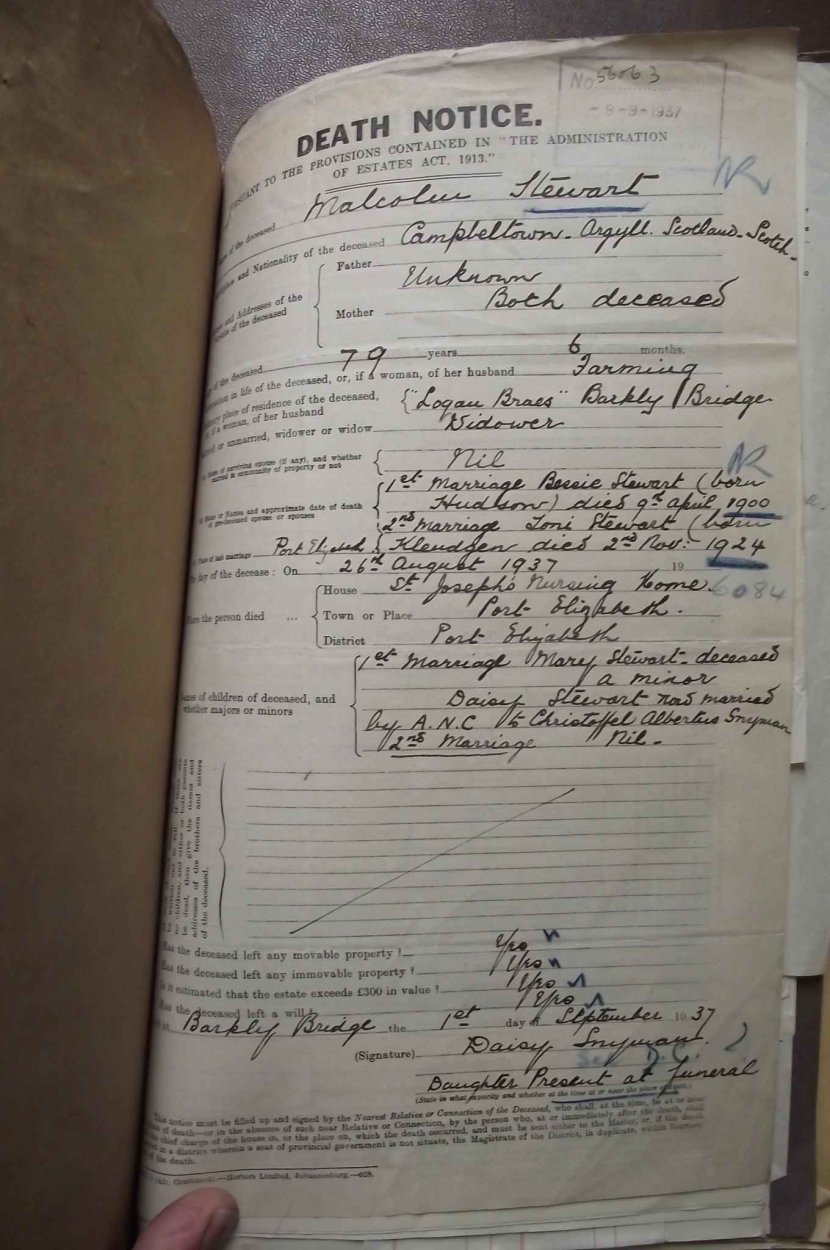 No 56063
-9-9-1937
DEATH NOTICE.
TO THE PROVISIONS CONTAINED IN "THE ADMINISTRATION
OF ESTATES ACT, 1913."
of the deceased Malcolm Stewart
and Nationality of the deceased Campbeltown - Argyll. Scotland - Scotch -
and Addresses of the
of the deceased
Father Unknown
Mother Both deceased
of the deceased 79 years 6 months.
in life of the deceased, or, if a woman, of her husband Farming
place of residence of the deceased,
a woman, of her husband
"Logan Braes" Barkly Bridge
or unmarried, widower or widow Widower
of surviving spouse (if any), and whether
married in community of property or not
Nil
NR
or Names and approximate date of death
of pre-deceased spouse or spouses
1st Marriage Bessie Stewart (born
Hudson) died 9th April 1900
2nd Marriage Toni Stewart (born
of last marriage Port Elizabeth Kleudgen died 2nd Nov: 1924
day of the decease: On 26th August 1937 19
House St Joseph's Nursing Home. 6084
the person died ... Town or Place Port Elizabeth.
District Port Elizabeth
of children of deceased, and
whether majors or minors
1st Marriage Mary Stewart - deceased
a minor
Daisy Stewart now married
by A.N.C to Christoffel Albertus Snyman
2nd Marriage Nil -
be dead, then give the names and
addresses of the brothers and sisters
of the deceased.
Has the deceased left any movable property? Yes
Has the deceased left any immovable property? Yes
Is it estimated that the estate exceeds £300 in value? Yes
Has the deceased left a will? Yes
at Barkly Bridge the 1st day of September 1937
(Signature) Daisy Snyman.
Daughter Present at funeral
(State in what capacity and whether at the time at or near the place of death.)
This notice must be filled up and signed by the Nearest Relative or Connection of the Deceased, who shall, at the time, be at or near
of death—or in the absence of such near Relative or Connection, by the person who, at or immediately after the death, shall
chief charge of the house in, or the place on, which the death occurred, and must be sent either to the Master, or, if the death
in a district wherein a seat of provincial government is not situate, the Magistrate of the District, in duplicate, within fourteen
of the death.
Hortors Limited, Johannesburg.